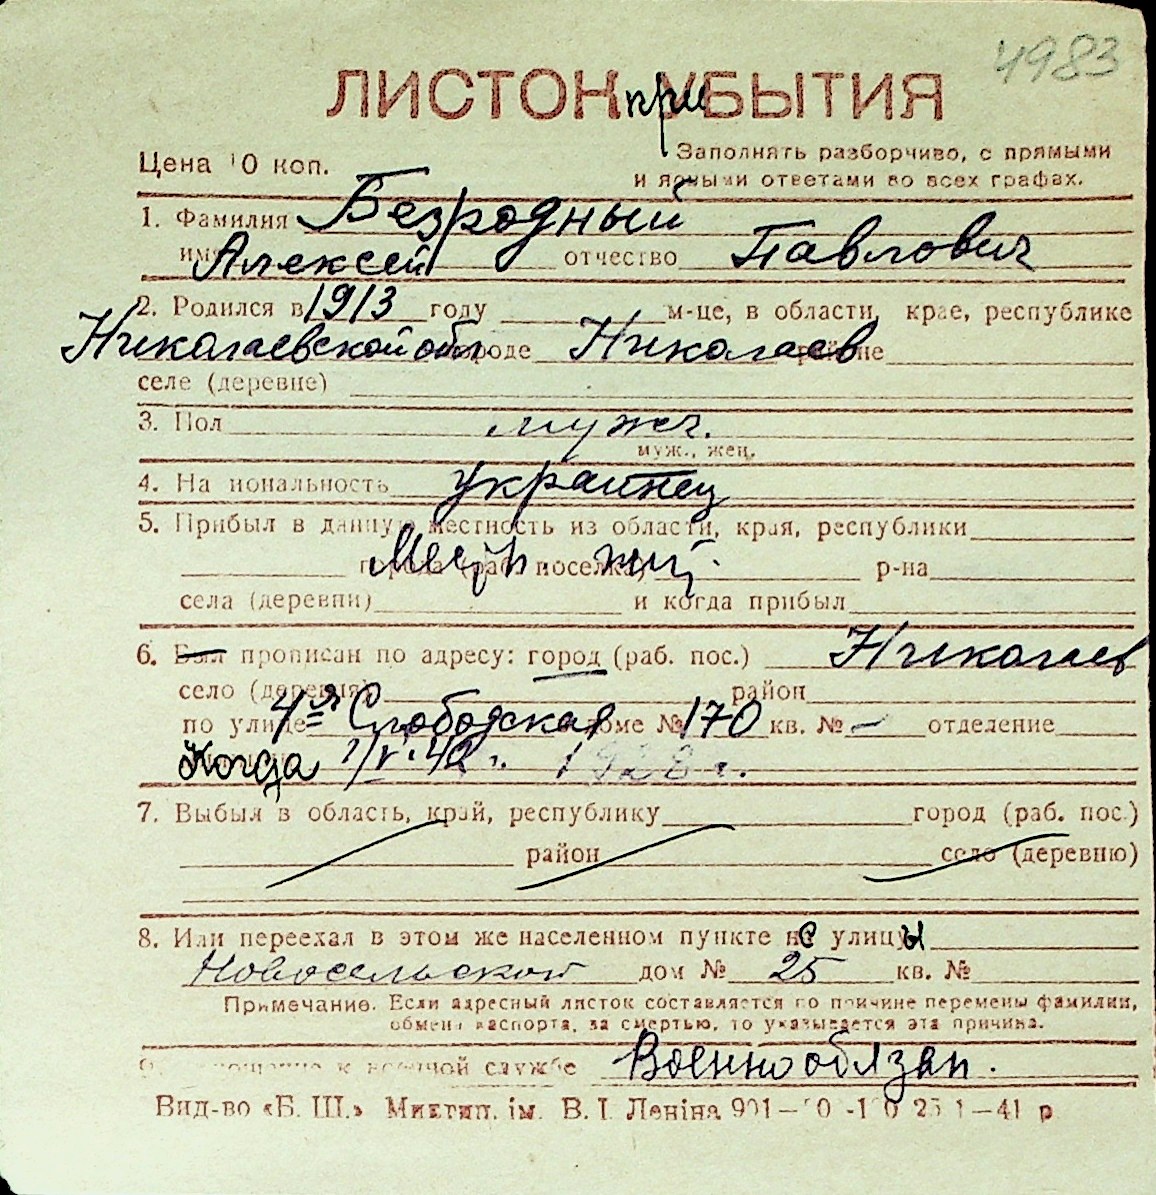 4983
ЛИСТОК при УБЫТИЯ
Цена 10 коп.
Заполнять разборчиво, с прямыми
и ясными ответами во всех графах.
1. Фамилия Безродный
имя Алексей отчество Павлович
2. Родился в 1913 году м-це, в области, крае, республике
Николаевской обл городе Николаев районе
селе (деревне)
3. Пол мужч.
муж., жен.
4. Национальность украинец
5. Прибыл в данную местность из области, края, республики
города (раб. поселка) Местн. жит. р-на
села (деревни) и когда прибыл
6. Был прописан по адресу: город (раб. пос.) Николаев
село (деревня) район
по улице 4=я Слободская доме № 170 кв. № – отделение
Когда 1/V-42 г. 1928 г.
7. Выбыл в область, край, республику город (раб. пос.)
район село (деревню)
8. Или переехал в этом же населенном пункте не с улицы
Новосельской дом № 25 кв. №
Примечание. Если адресный листок составляется по причине перемены фамилии,
обмена паспорта, за смертью, то указывается эта причина.
9. Отношение к военной службе Военнообязан.
Вид-во «Б. Ш.» Миктип. ім. В. І. Леніна